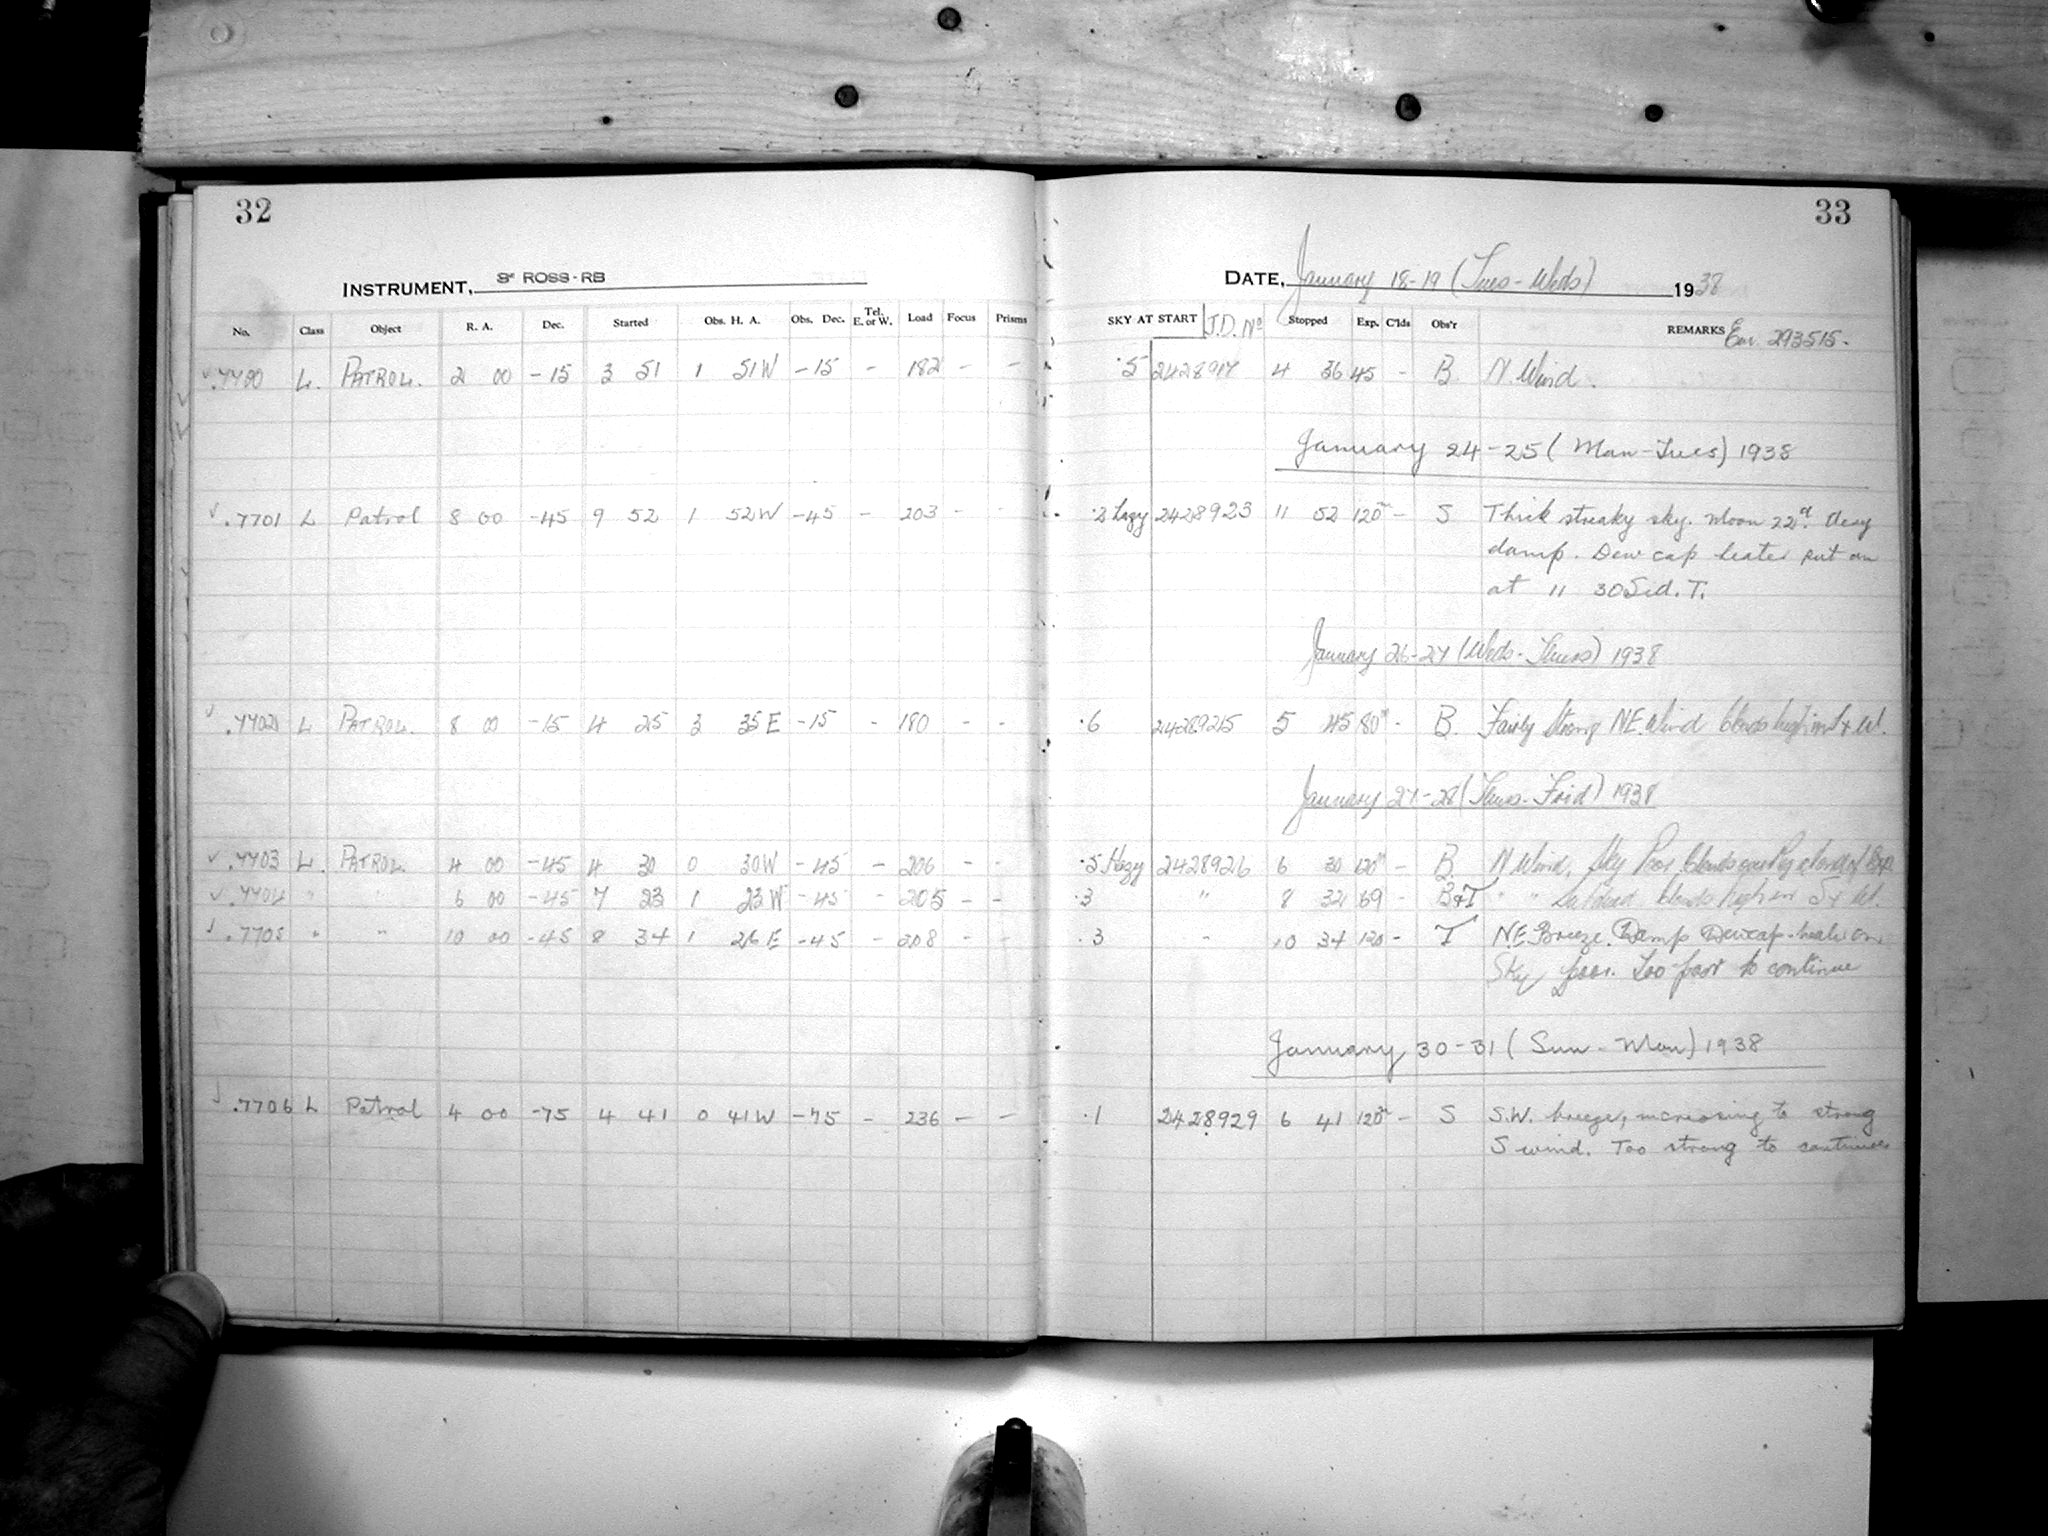 32
INSTRUMENT, 3" ROSS-RB
No. Class Object R. A. Dec. Started Obs. H. A. Obs. Dec. Tel. E. or W. Load Focus Prisms
.7700 L. PATROL. 2 00 -15 3 51 1 51W -15 - 182 - -
.7701 L Patrol 8 00 -45 9 52 1 52W -45 - 203 - -
.7702 L PATROL. 8 00 -15 4 25 3 35E -15 - 180 - -
.7703 L. PATROL. 4 00 -45 4 30 0 30W -45 - 206 - -
.7704 " " 6 00 -45 7 23 1 23W -45 - 205 - -
.7705 " " 10 00 -45 8 34 1 26E -45 - 208 - -
.7706 L Patrol 4 00 -75 4 41 0 41W -75 - 236 - -
33
DATE, January 18-19 (Tues-Weds) 1938
SKY AT START J.D. No Stopped Exp. C'lds Obs'r REMARKS 293515.
.5 2428917 4 36 45 - B. N. Wind.
January 24-25 (Mon-Tues) 1938
.2 hazy 2428923 11 52 120m - S Thick streaky sky. Moon 22d. Very
damp. Dew cap heater put on
at 11 30 Sid. T.
January 26-27 (Weds-Thurs) 1938
.6 2428925 5 45 80m - B. Fairly Strong NE. Wind Clouds high in S + W.
January 27-28 (Thurs-Frid) 1938
.5 Hazy 2428926 6 30 120m - B. N. Wind, Sky Poor, Clouds
.3 " 8 32 69 - B+T " " Clouds high in S + W.
.3 " 10 34 120 - T NE. Breeze. Damp Dewcap-heater on.
Sky poor. Too poor to continue
January 30-31 (Sun-Mon) 1938
.1 2428929 6 41 120m - S S.W. breeze, increasing to strong
S wind. Too strong to continue